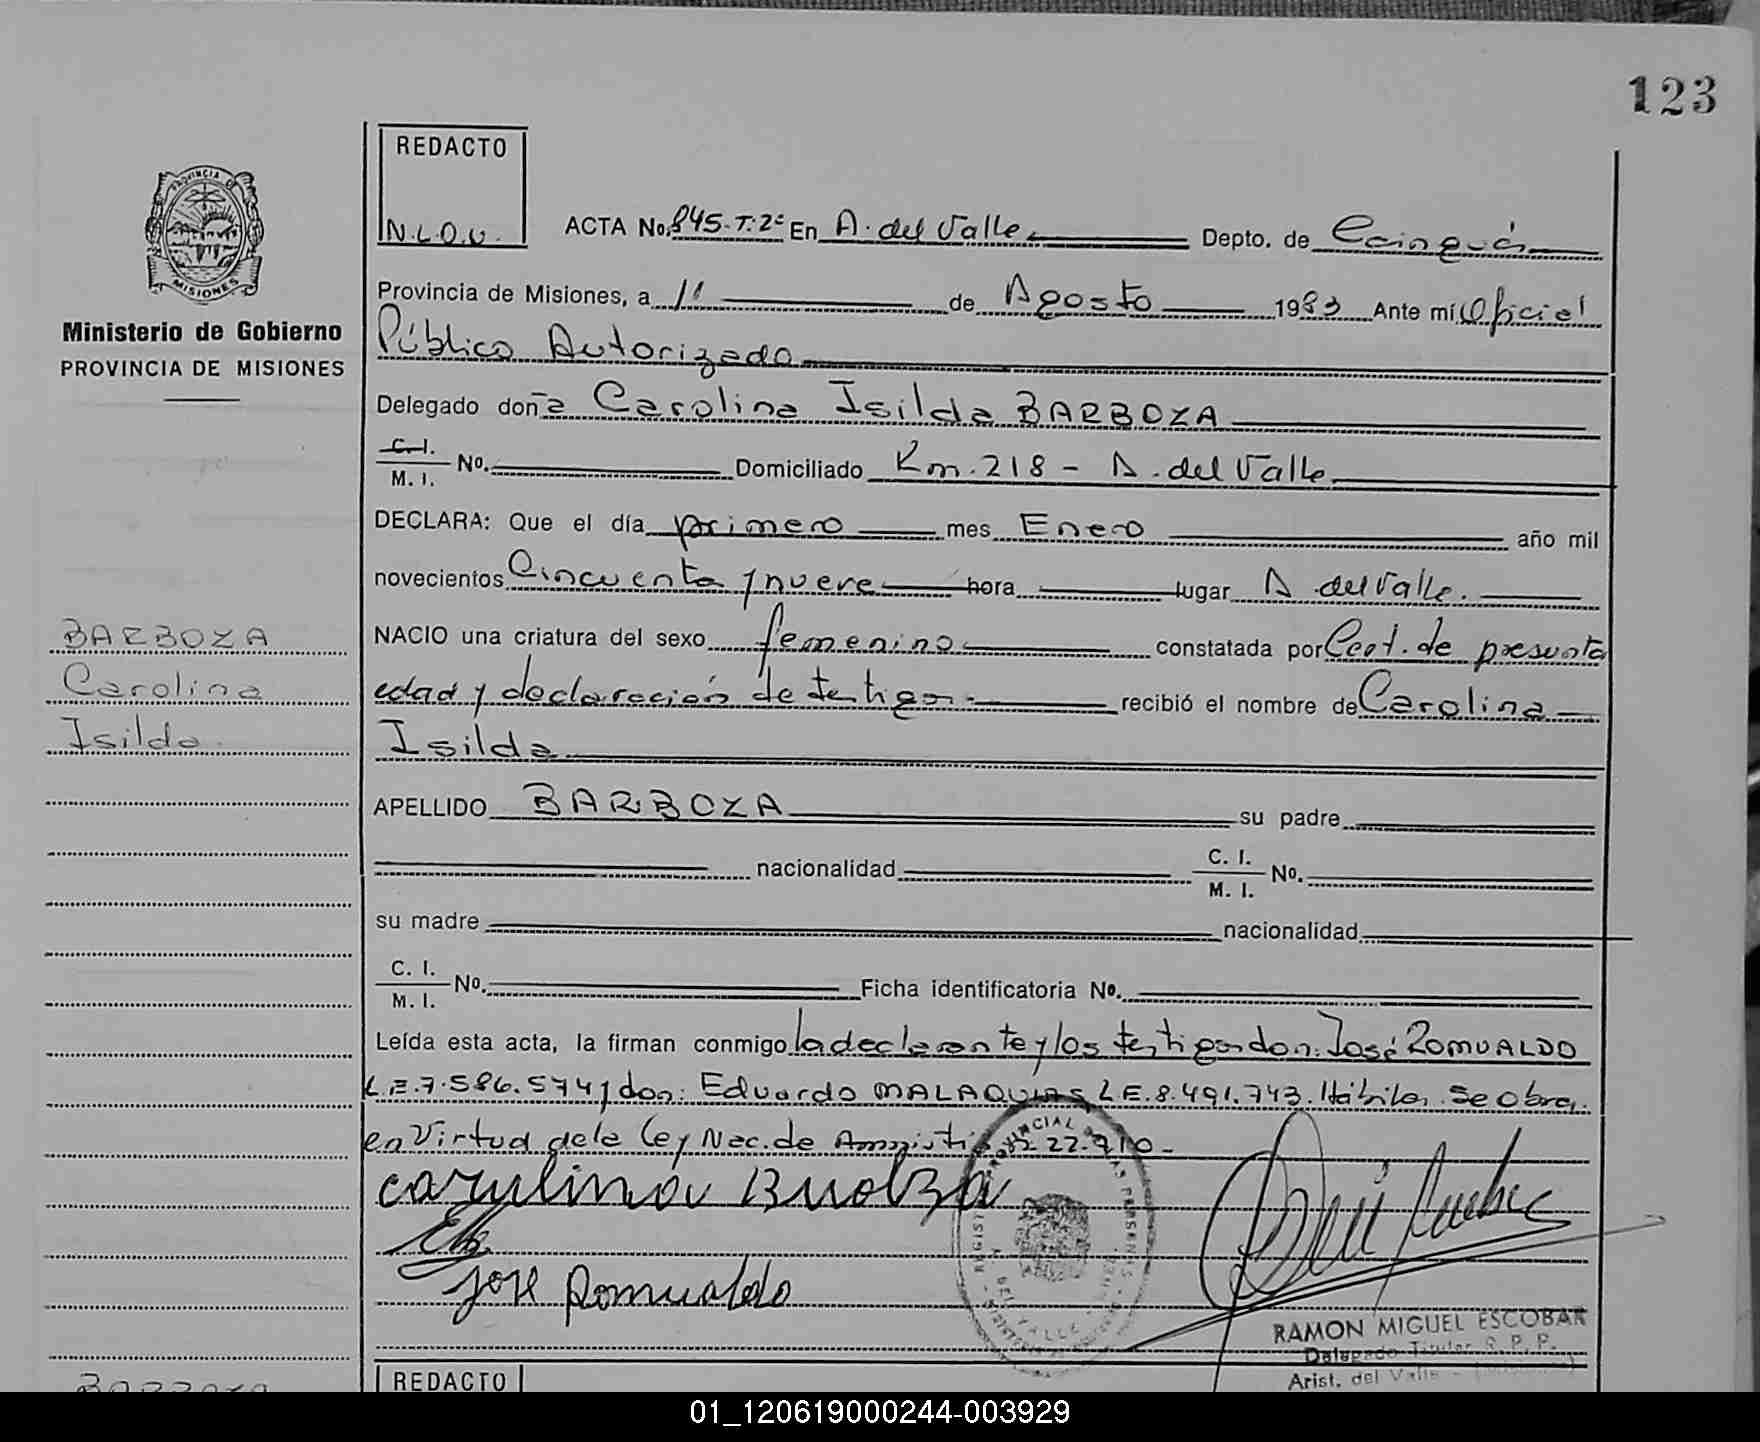 123
REDACTO
N.L.O.U.
ACTA No. 845. T:2º En A. del Valle Depto. de Cainguás
PROVINCIA DE
MISIONES
Ministerio de Gobierno
PROVINCIA DE MISIONES
Provincia de Misiones, a 11 de Agosto 1983 Ante mí Oficial
Público Autorizado
Delegado doña Carolina Isilda BARBOZA
C. I.
M. I. Nº. Domiciliado Km. 218 - A. del Valle
DECLARA: Que el día primero mes Enero año mil
novecientos Cincuenta y nueve hora lugar A. del Valle.
NACIO una criatura del sexo femenino constatada por Cert. de presunta
edad y declaración de testigos. recibió el nombre de Carolina
Isilda
BARBOZA
Carolina
Isilda.
APELLIDO BARBOZA su padre
nacionalidad C. I.
M. I. Nº.
su madre nacionalidad
C. I.
M. I. Nº. Ficha identificatoria Nº.
Leída esta acta, la firman conmigo la declarante y los testigos don: José ROMUALDO
L.E. 7.586.574 y don: Eduardo MALAQUIAS, L.E. 8.491.743. Hábiles. Se obra
en Virtud de la Ley Nac. de Amnistía 22.710.-
José Romualdo
RAMON MIGUEL ESCOBAR
Delegado Titular R. P. P.
Arist. del Valle
REDACTO
BARBOZA
01_120619000244-003929